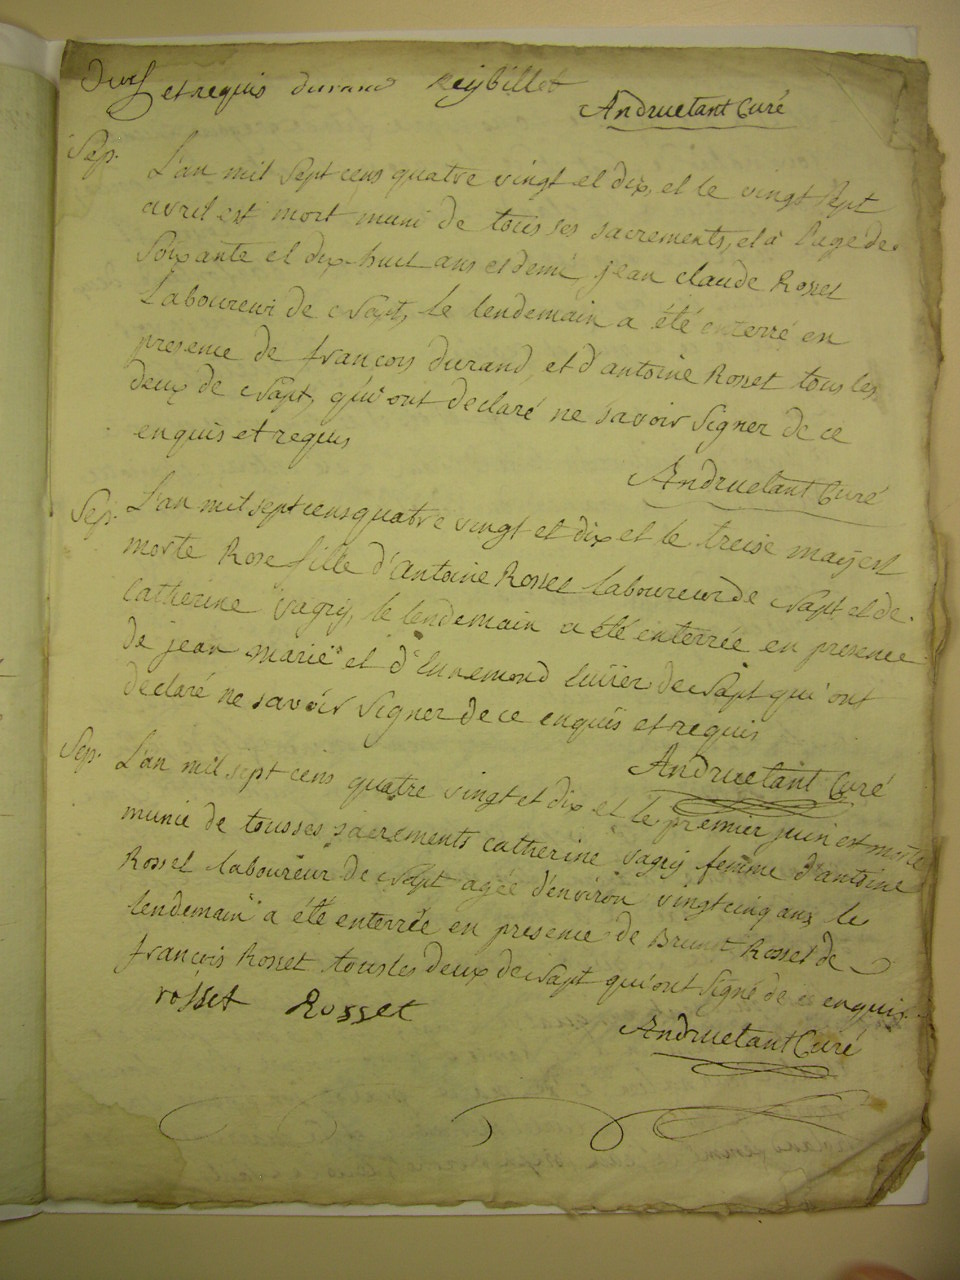 et requis durand Reybillet
Andruetant Curé
Sep. L'an mil sept cens quatre vingt et dix, et le vingt sept
avril est mort muni de tous ses sacrements, et à l'age de
soixante et dix-huit ans et demi jean claude Rosset
Laboureur de Napt, le lendemain a été enterré en
presence de françois durand, et d'antoine Rosset tous les
deux de Napt, qui ont declaré ne savoir signer de ce
enquis et requis
Andruetant Curé
Sep. L'an mil sept cens quatre vingt et dix et le treise may est
morte Rose fille d'Antoine Rosset laboureur de Napt et de
Catherine vagry, le lendemain a été enterrée en presence
de jean marie et d'Ennemond Cuirer de Napt qui ont
declaré ne savoir signer de ce enquis et requis
Andruetant Curé
Sep. L'an mil sept cens quatre vingt et dix et le premier juin est morte
munie de tous ses sacrements catherine vagry femme d'antoine
Rosset laboureur de Napt agée d'environ vingt cinq ans le
lendemain a été enterrée en presence de Rosset de
françois Rosset tous les deux de Napt qui ont signé de ce enquis
rosset Rosset
Andruetant Curé